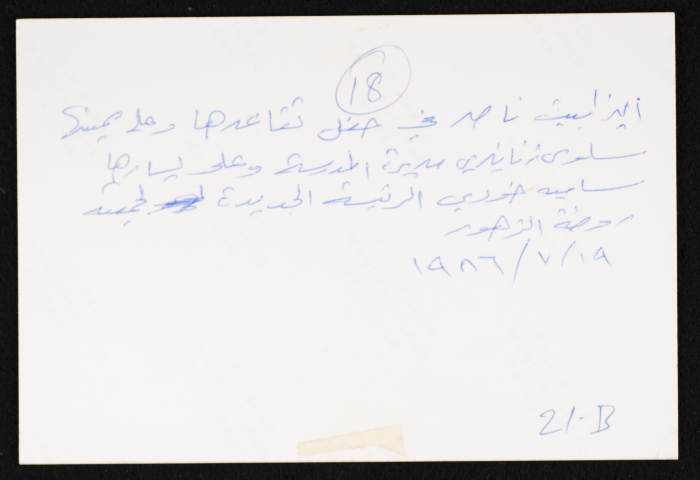 18
اليزابيث ناصر في حفل تقاعدها وعلى يمينها
سلوى زنانيري مديرة المدرسة وعلى يسارها
سامية خوري الرئيسة الجديدة لجمعية
روضة الزهور
١٩٨٦/٧/١٩
21.B